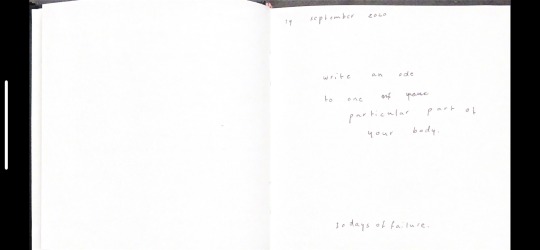 19 september 2020
write an ode
to one
particular part of
your body.
30 days of failure.